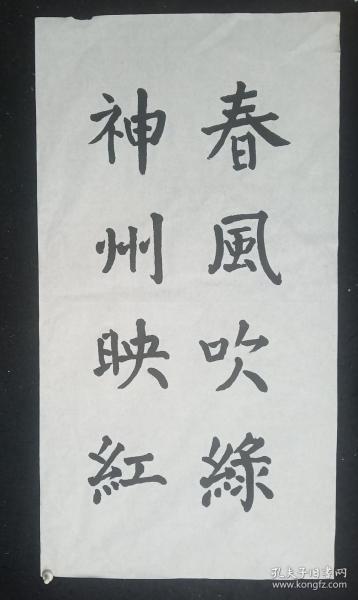 春風吹綠
神州映紅
孔夫子旧书网
www.kongfz.com